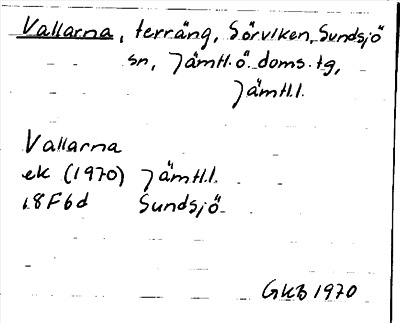 Vallarna, terräng, Sörviken, Sundsjö
sn, Jämtl. ö. doms. tg,
Jämtl.l.
Vallarna
ek (1970) Jämtl.l.
18F6d Sundsjö
GKB 1970